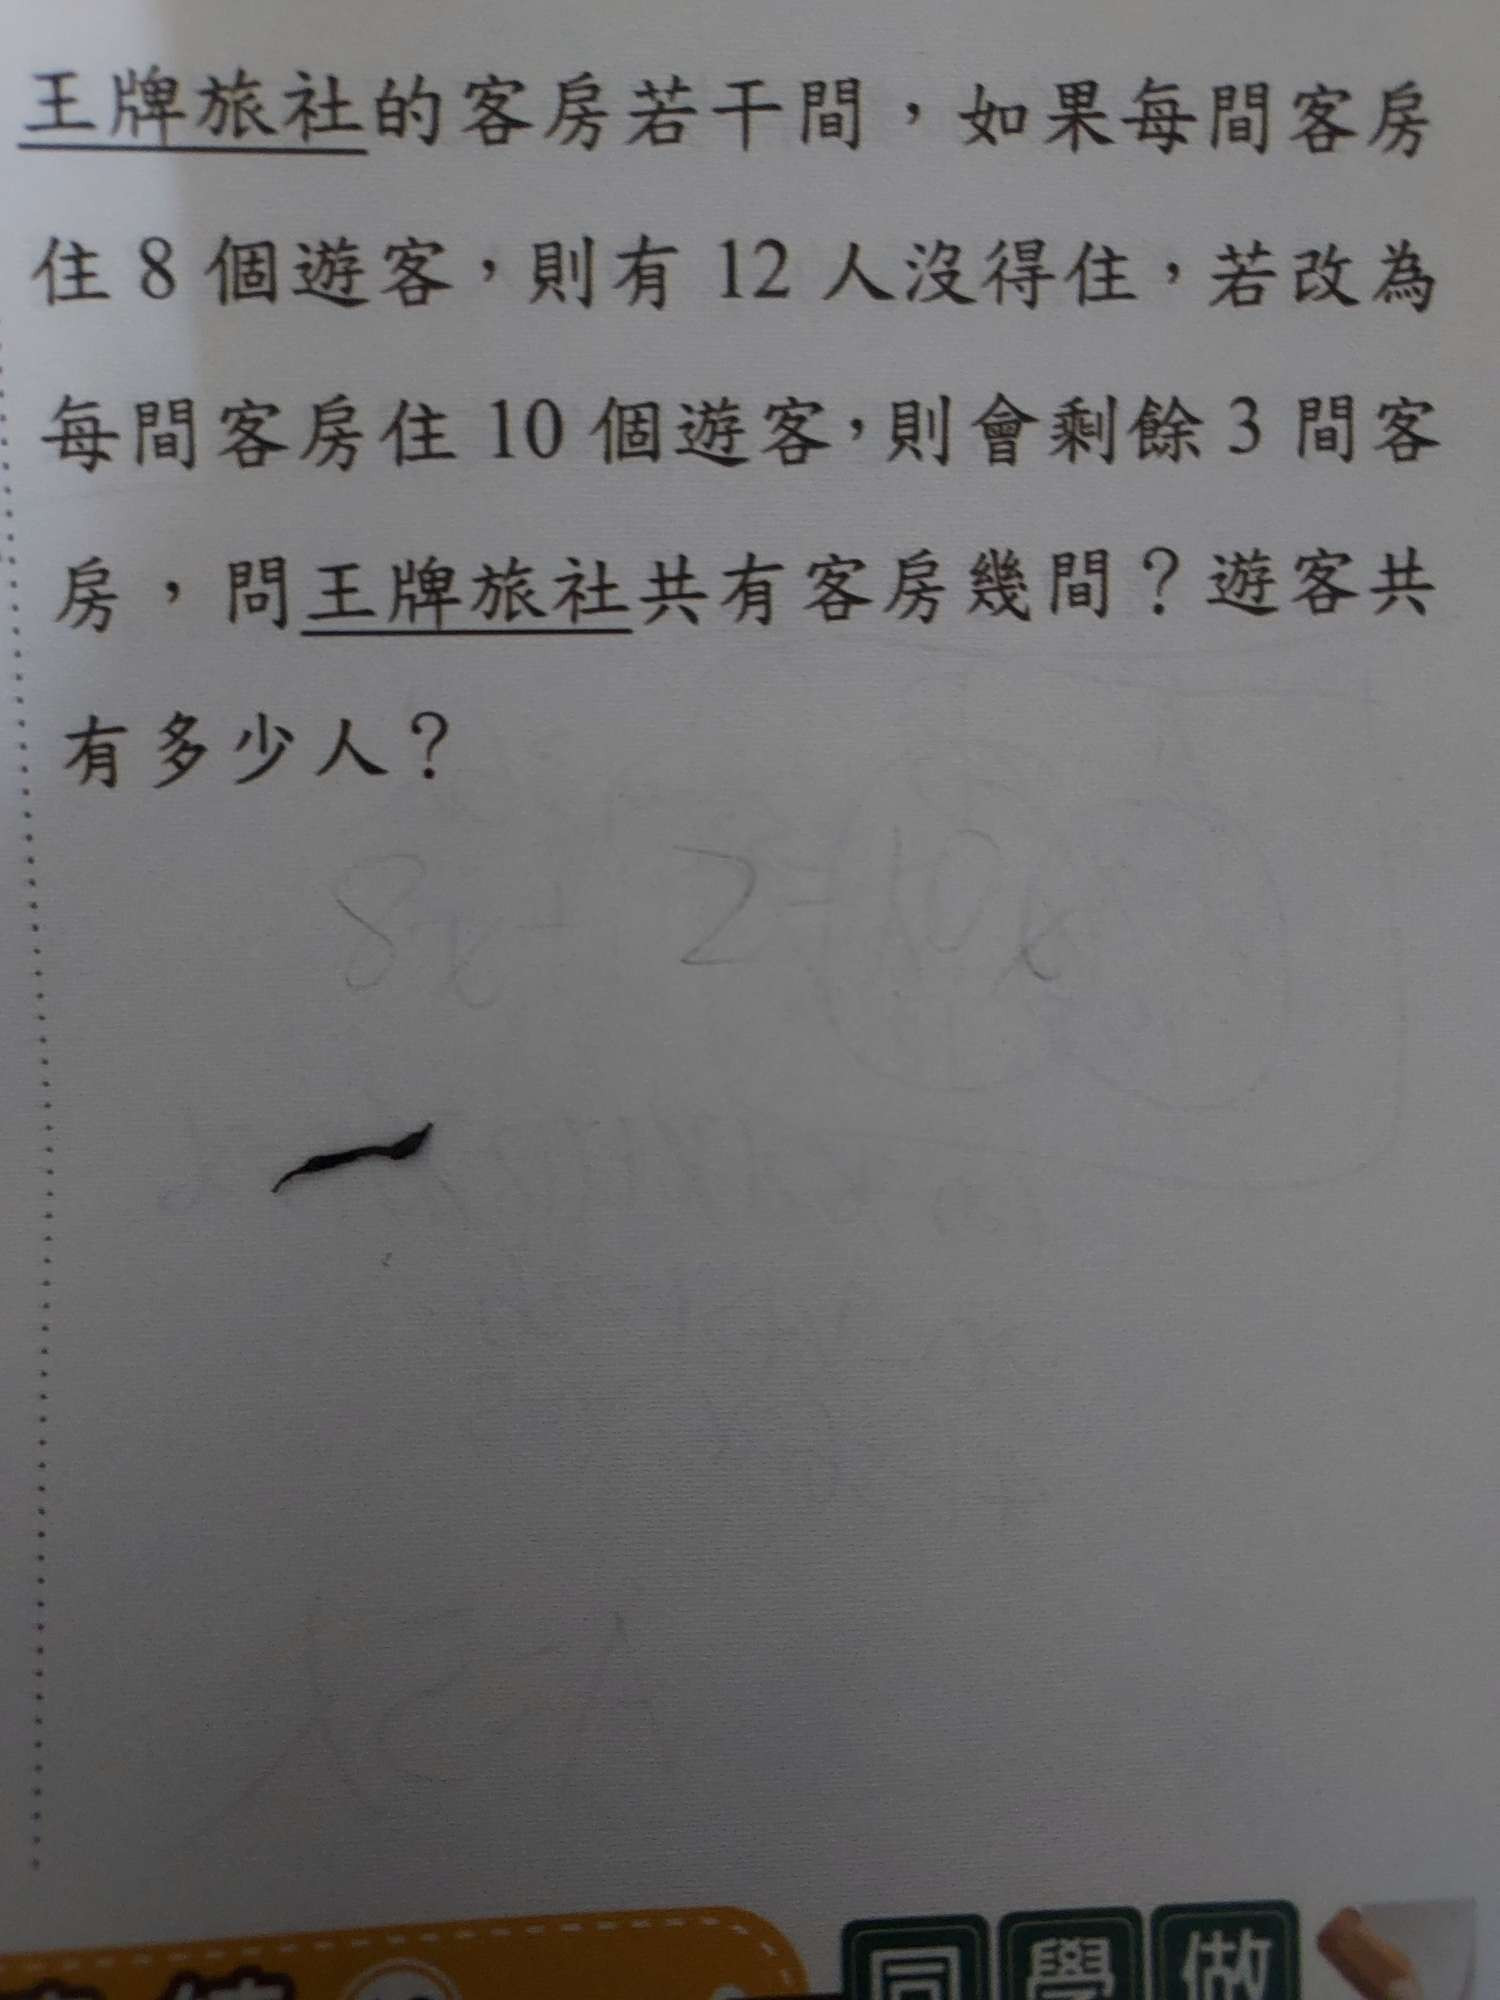 王牌旅社的客房若干間，如果每間客房
住8個遊客，則有12人沒得住，若改為
每間客房住10個遊客，則會剩餘3間客
房，問王牌旅社共有客房幾間？遊客共
有多少人？
8x+ 2=10x
同學做